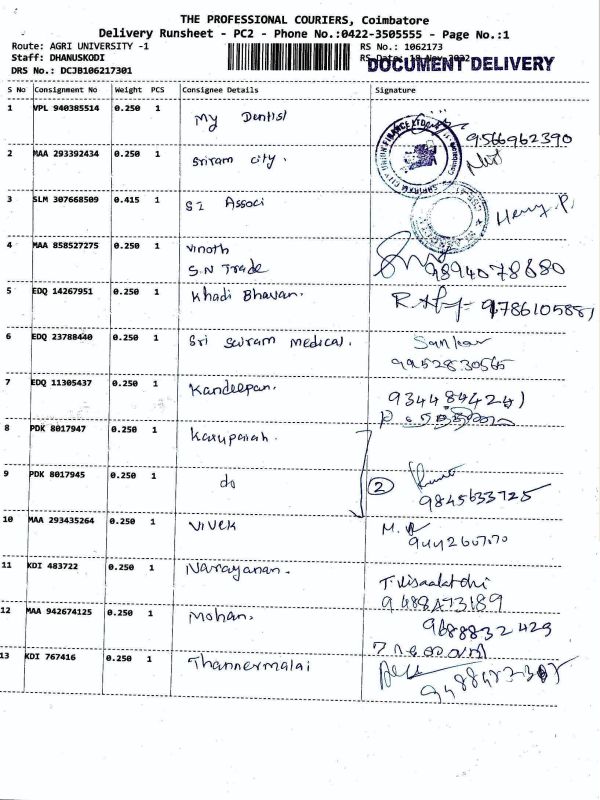 THE PROFESSIONAL COURIERS, Coimbatore
Delivery Runsheet - PC2 - Phone No.:0422-3505555 - Page No.:1
Route: AGRI UNIVERSITY -1
RS No.: 1062173
Staff: DHANUSKODI
RS Date: 18 Nov 2022
DOCUMENT DELIVERY
DRS No.: DCJB106217301
S No Consignment No Weight PCS Consignee Details Signature
1 VPL 940385514 0.250 1 My Dentist
9566962390
2 MAA 293392434 0.250 1 Sriram city.
3 SLM 307668509 0.415 1 SI Associ
Henry.P.
4 MAA 858527275 0.250 1 Vinoth
S.N Trade 9894078680
5 EDQ 14267951 0.250 1 Khadi Bhavan. 9786105881
6 EDQ 23788440 0.250 1 Sri Sivram medical. Sankar
9952830565
7 EDQ 11305437 0.250 1 Kandeepan. 9344844241
8 PDK 8017947 0.250 1 Karupaiah.
9 PDK 8017945 0.250 1 do 2
9845633725
10 MAA 293435264 0.250 1 Vivek M.
9442607070
11 KDI 483722 0.250 1 Narayanan. T. Visalatchi
9488473189
12 MAA 942674125 0.250 1 Mohan. 9688832429
13 KDI 767416 0.250 1 Thannermalai